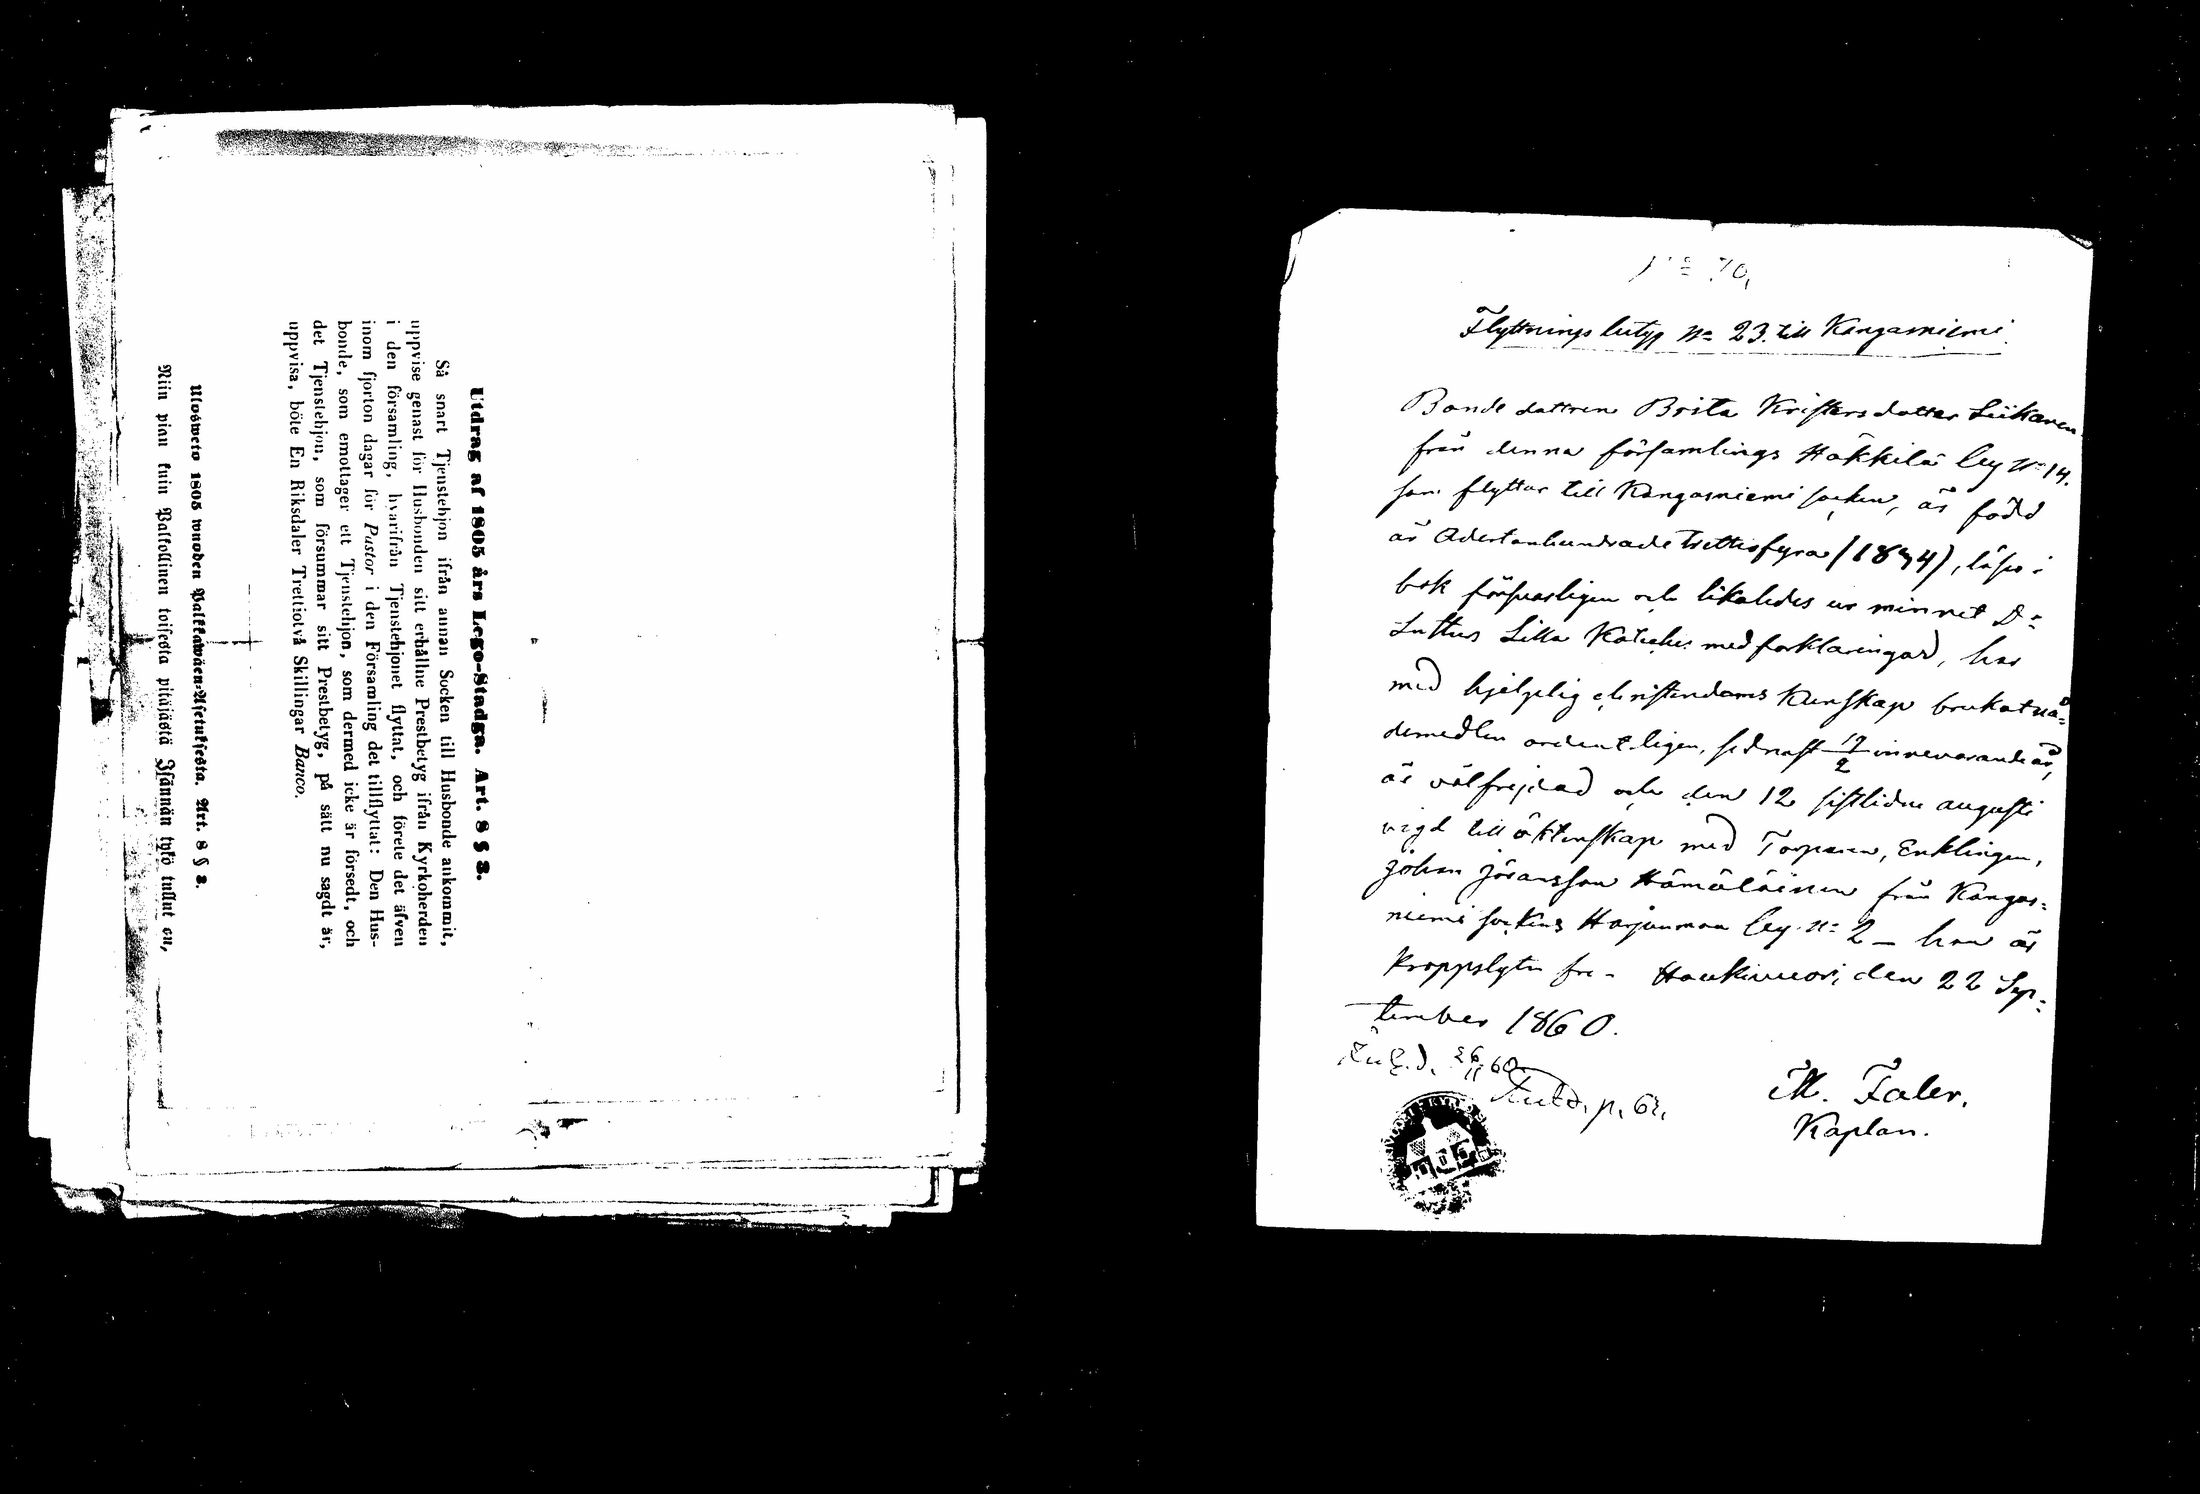 Utdrag af 1805 års Lego-Stadga. Art. 8 § 3.
Så snart Tjenstehjon ifrån annan Socken till Husbonde ankommit,
uppvise genast för Husbonden sitt erhållne Prestbetyg ifrån Kyrkoherden
i den församling, hvarifrån Tjenstehjonet flyttat, och förete det äfven
inom fjorton dagar för Pastor i den Församling det tillflyttat: Den Hus-
bonde, som emottager ett Tjenstehjon, som dermed icke är försedt, och
det Tjenstehjon, som försummar sitt Prestbetyg, på sätt nu sagdt är,
uppvisa, böte En Riksdaler Trettiotvå Skillingar Banco.
Ulosweto 1805 wuoden Palkkawäen-Asetuksesta. Art. 8 § 3.
Niin pian kuin Palkollinen toisesta pitäjästä Isännän tykö tullut on,
No 70,
Flyttnings betyg No 23. till Kangasniemi.
Bonde dottren Brita Kristersdotter Liikanen
från denna församlings Häkkilä by No 14.
som flyttar till Kangasniemi socken, är född
år Adertonhundrade Trettiofyra (1834), läser i
bok försvarligen och likaledes ur minnet Dr
Luthers Lilla Kateches med förklaringar, har
med hjelplig christendoms kunskap brukat nå=
demedlen ordentligen, sednast 19/2 innevarande år,
är välfrejdad och den 12 sistlidne augusti
vigd till äktenskap med Torparen, Enklingen,
Johan Jöransson Hämäläinen från Kangas=
niemi sockens Harjunmaa by No 2 – hon är
kroppslyten fri – Haukivuori, den 22 Sep=
tember 1860.
26/11 60.
p. 62,
M. Faler,
Kaplan.